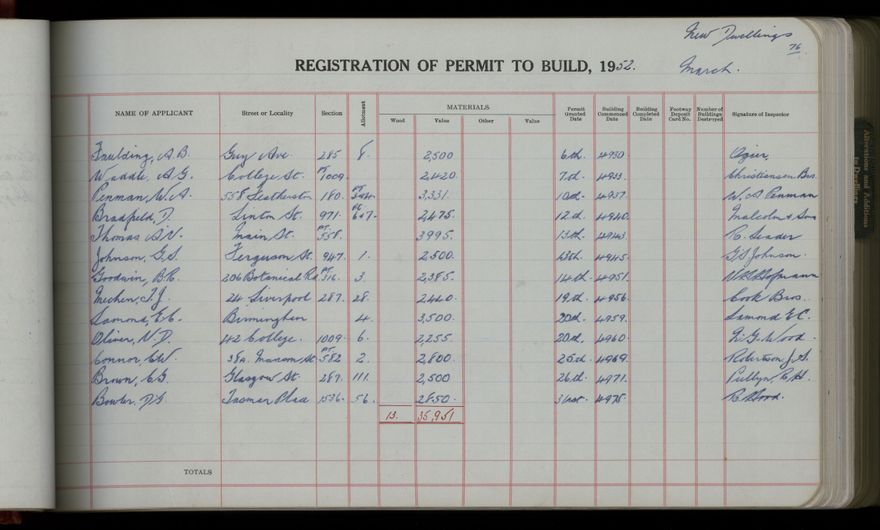 New Dwellings
76
REGISTRATION OF PERMIT TO BUILD, 1952.
March.
NAME OF APPLICANT Street or Locality Section Allotment MATERIALS Permit Granted Date Building Commenced Date Building Completed Date Footway Deposit Card No. Number of Buildings Destroyed Signature of Inspector
Wood Value Other Value
Faulding, A B. Guy Ave 285 8. 2,500 6th. 4930
Waddle, A. G. College St. PT 1009. 2,420 7th. 4933 Christiansen Bros.
Penman, W. A. 558 Featherston 180. PT 3,331. 10th. 4937 W. A. Penman
Bradfield, D. Linton St. 971. 6+7. 2,475. 12th. 4940 Malcolm & Sons
Thomas A. V. Main St. PT 558. 3995. 13th. 4943 C. Leader
Johnson, G. S. Ferguson St. 947. 1. 2,500. 13th. 4945 G S Johnson
Goodwin, B. R. 206 Botanical Rd PT 316. 3. 2,385. 14th. 4951. Hofmann
24 Liverpool 287. 28. 2,440. 19th. 4956 Cook Bros.
Lamond, E. C. Birmingham 4. 3,500. 20th. 4959. Lamond E C.
Oliver, N. D. 142 College. 1009. 6. 2,255. 20th. 4960 L. G. Wood.
Connor, C. W. 38A. Manson St PT 582 2. 2,800. 25th. 4969. Robertson J. S.
Brown, C. G. Glasgow St. 287. 111. 2,500 26th. 4971.
Bowler, D G Tasman Place 1536. 56. 2850. 31st. 4975
13. 35,951
TOTALS
Alterations and Additions to Dwellings